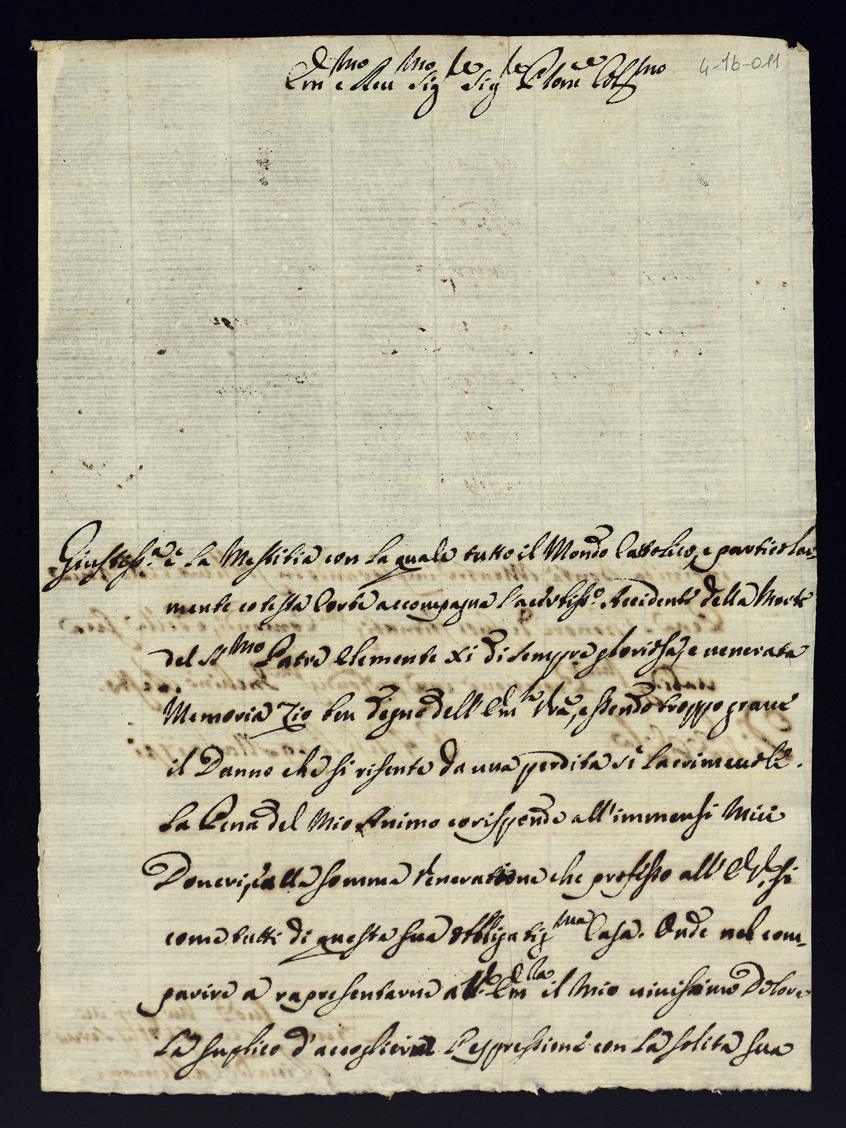 Em.mo e Reu.mo Sig.re Sig.re P.rone Col.mo
4-16-011
Giustiss.a è la Mestitia con la quale tutto il Mondo Cattolico, e particolar=
mente cotesta Corte accompagna l'acerbiss.o Accidente della Morte
del S.mo Patre Clemente XI di sempre gloriosa, e venerata
Memoria Zio ben degno dell'Em.za V.ra, essendo troppo graue
il Danno che si risente da una perdita sì lacrimeuole.
La Pena del Mio Animo corisponde all'immensi Miei
Doueri, e alla somma Veneratione che professo all'E.V. si
come tutti di questa sua obbligatis.ma Casa. Onde nel com=
parire a rapresentarne all' Em. il Mio viuissimo Dolore
La suplico d'accoglierne l'espressione con la solita sua